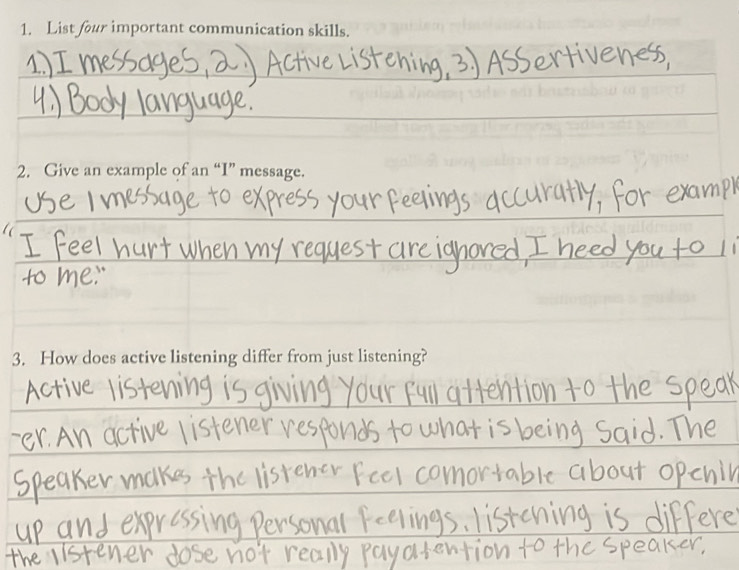 1. List four important communication skills.
1.) I messages, 2.) Active Listening, 3.) Assertiveness,
4.) Body language.
2. Give an example of an “I” message.
Use I message to express your feelings accuratly, for exampl
"I feel hurt when my request are ignored, I need you to li
to me."
3. How does active listening differ from just listening?
Active listening is giving your full attention to the speak
-er. An active listener responds to what is being said. The
Speaker makes the listener feel comortable about openin
up and expressing personal feelings. listening is differe
the listener dose not really pay atention to the speaker.